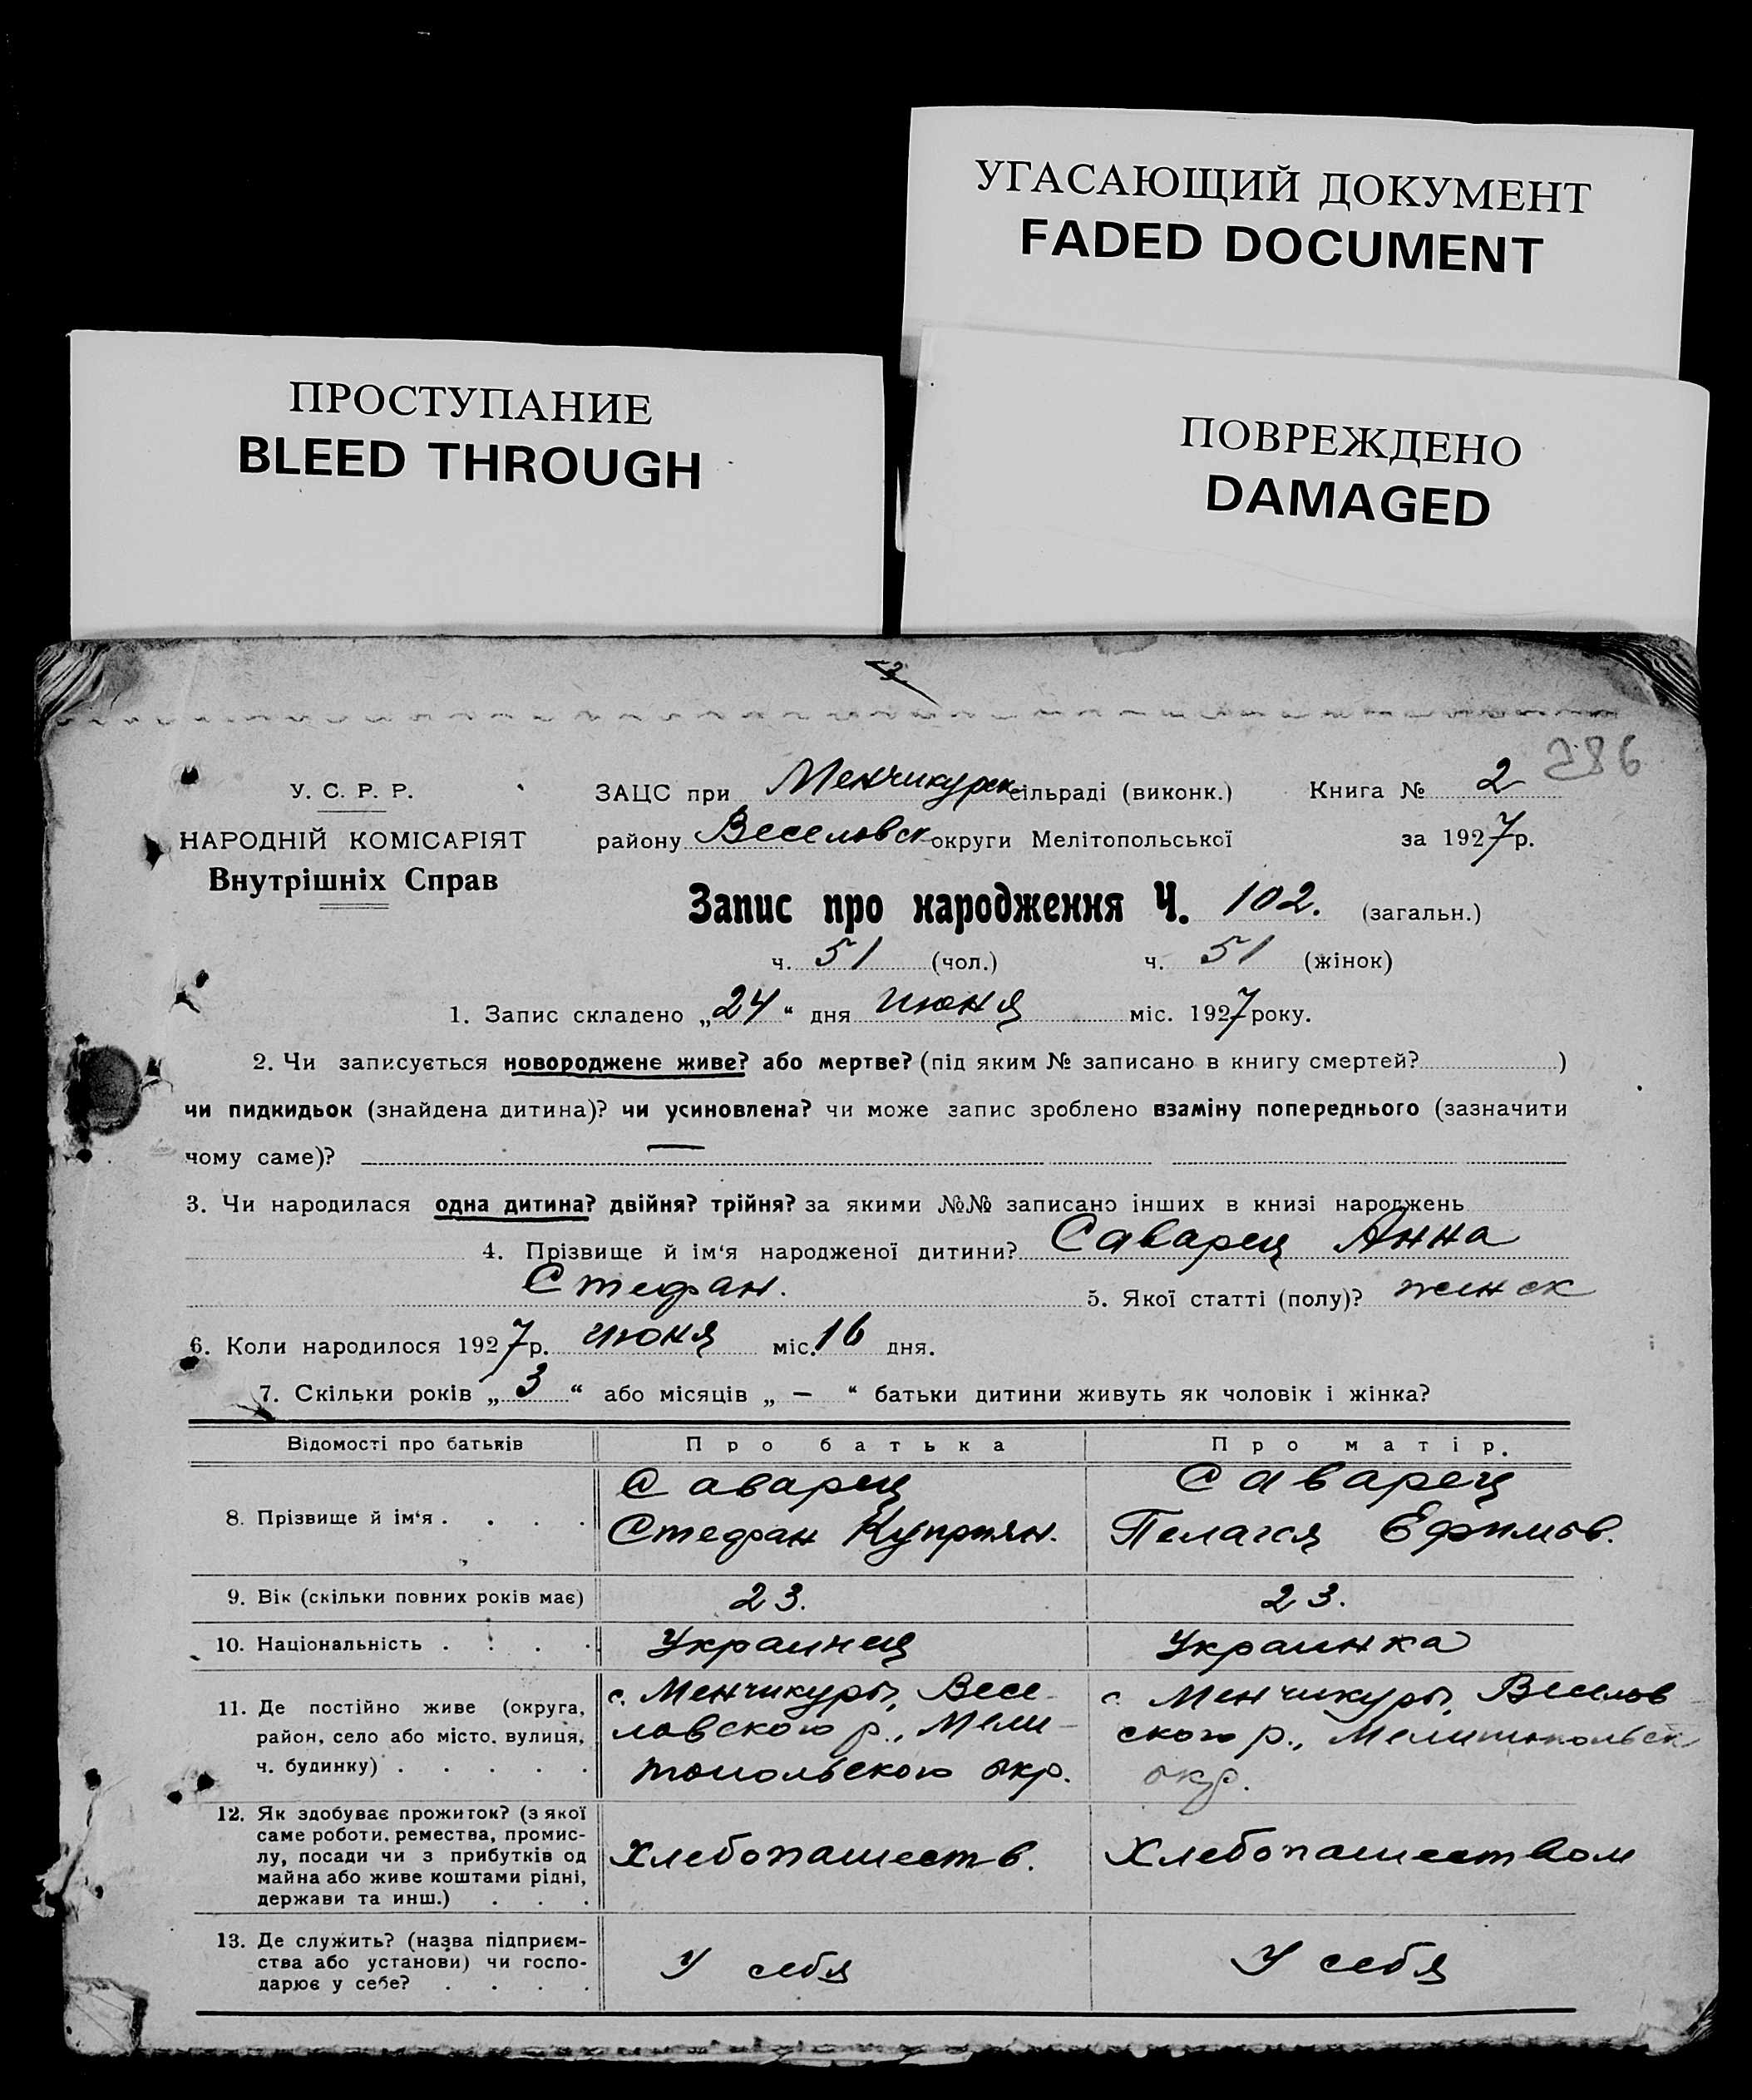 УГАСАЮЩИЙ ДОКУМЕНТ
FADED DOCUMENT
ПРОСТУПАНИЕ
BLEED THROUGH
ПОВРЕЖДЕНО
DAMAGED
286
У. С. Р. Р.
НАРОДНІЙ КОМІСАРІЯТ
Внутрішніх Справ
ЗАЦС при Менчикурск сільраді (виконк.) Книга № 2
району Веселовск округи Мелітопольської за 1927 р.
Запис про народження Ч. 102. (загальн.)
ч. 51 (чол.) ч. 51 (жінок)
1. Запис складено „24“ дня июня міс. 1927 року.
2. Чи записується новороджене живе? або мертве? (під яким № записано в книгу смертей? )
чи пидкидьок (знайдена дитина)? чи усиновлена? чи може запис зроблено взаміну попереднього (зазначити
чому саме)? —
3. Чи народилася одна дитина? двійня? трійня? за якими №№ записано інших в книзі народжень
4. Прізвище й ім‘я народженої дитини? Саварец Анна
Стефан. 5. Якої статті (полу)? женск
6. Коли народилося 1927 р. июня міс. 16 дня.
7. Скільки років „ 3 “ або місяців „ — “ батьки дитини живуть як чоловік і жінка?
Відомості про батьків Про батька Про матір.
8. Прізвище й ім‘я . . . .
Саварец
Стефан Куприян.
Саварец
Пелагея Ефимов.
9. Вік (скільки повних років має) 23. 23.
10. Національність . . . . Украинец Украинка
11. Де постійно живе (округа,
район, село або місто, вулиця,
ч. будинку) . . . . .
с. Менчикуры, Весе-
ловского р., Мели-
топольского окр.
с. Менчикуры, Веселов
ского р., Мелитопольск
окр.
12. Як здобуває прожиток? (з якої
саме роботи, ремества, промис-
лу, посади чи з прибутків од
майна або живе коштами рідні,
держави та инш.) . . .
Хлебопашеств.
Хлебопашеством
13. Де служить? (назва підприєм-
ства або установи) чи госпо-
дарює у себе? . . . .
У себя
У себя